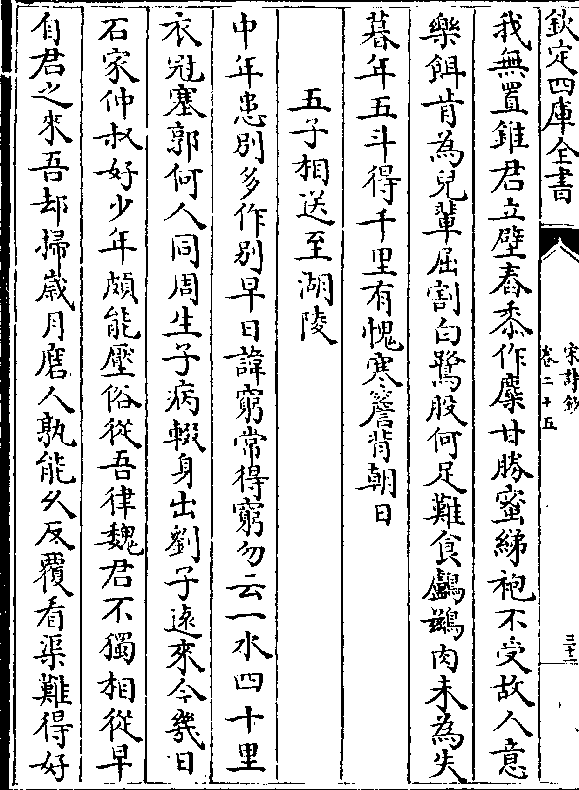 欽定四庫全書
宋詩鈔
卷二十五
三十二
我無置錐君立壁舂黍作糜甘勝蜜綈袍不受故人意
藥餌肯為兒輩屈割白鷺股何足難食鸕鷀肉未為失
暮年五斗得千里有愧寒簷背朝日
五子相送至湖陵
中年患別多作別早日諱窮常得窮勿云一水四十里
衣冠塞郭何人同周生子病輟身出劉子遠來今幾日
石家仲叔好少年頗能壓俗從吾律魏君不獨相從早
自君之來吾却掃歲月磨人孰能久反覆看渠難得好